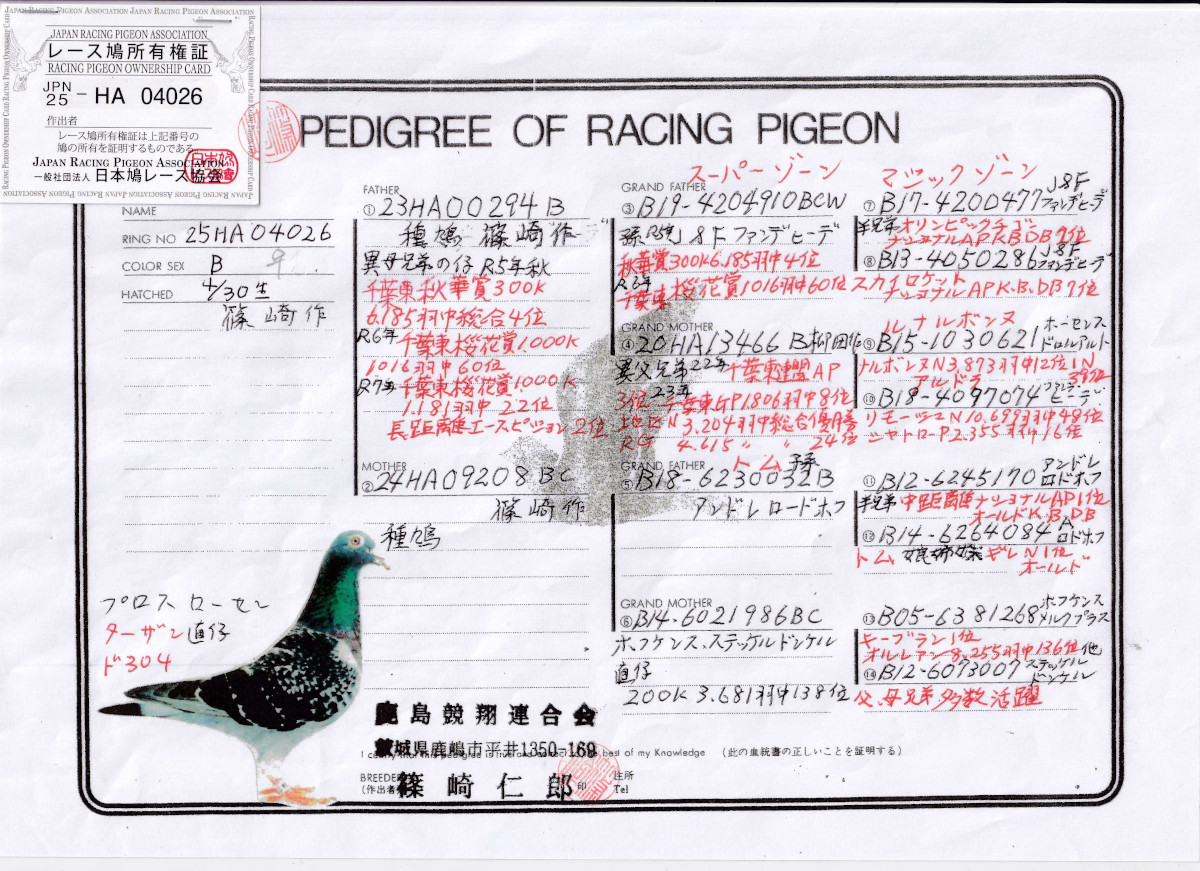 JAPAN RACING PIGEON ASSOCIATION
レース鳩所有権証
RACING PIGEON OWNERSHIP CARD
JPN 25 - HA 04026
作出者
レース鳩所有権証は上記番号の
鳩の所有を証明するものである。
JAPAN RACING PIGEON ASSOCIATION
一般社団法人 日本鳩レース協会
PEDIGREE OF RACING PIGEON
NAME
RING NO 25HA04026
COLOR SEX B ♀
HATCHED 4/30生
篠崎作
FATHER
① 23HA00294 B
種鳩 篠崎作
異母兄弟の仔 R5年秋
千葉東秋華賞300K
6.185羽中総合4位
R6年 千葉東桜花賞1.000K
1016羽中60位
R7年 千葉東桜花賞1000K
1.181羽中22位
長距離エースピジョン2位
MOTHER
② 24HA09208 BC
篠崎作
種鳩
スーパーゾーン
GRAND FATHER
③ B19-4204910BCW
孫 J&Fファンデヒーデ
秋華賞300K6.185羽中4位
R6年
千葉東桜花賞1016羽中60位
GRAND MOTHER
④ 20HA13466 B柳田作
異父兄弟22年千葉東連盟AP
3位 23年千葉東GP1806羽中8位
地区N 3.204羽中総合優勝
RG 4.615 〃 〃 24位
トム 孫
GRAND FATHER
⑤ B18-6230032B
アンドレロードホフ
GRAND MOTHER
⑥ B14-6021986BC
ホフケンス、ステッケルドンケル
直仔
200K 3.681羽中138位
マジックゾーン
⑦ B17-4200477 J&Fファンデヒーデ
半兄弟オリンピックチゴ
ナショナルAPK.B.DB7位
⑧ B13-4050286 J&Fファンデヒーデ
スカイロケット
ナショナルAPK.B.DB7位
ルナルボンヌ
⑨ B15-1030621 ホーセンスドロルアルト
ナルボンヌN3,873羽中12位IN
アルドラ
⑩ B18-4097074 ファンデヒーデ
リモージュN10.699羽中48位
シャトローP2.355羽中16位
⑪ B12-6245170 アンドレロドホフ
半兄弟 中距離ナショナルAP1位
オールドK.B.DB
⑫ B14-6264084 Aロドホフ
トム 姉妹 ギレN1位
オールド
⑬ B05-6381268 ホフケンスメルクプラス
キーブラン1位
オルレアン8,255羽中136位他
⑭ B12-6073007 ステッケルドンケル
父、母兄弟多数活躍
プロスローセン
ターザン直仔
ド304
鹿島競翔連合会
茨城県鹿嶋市平井1350-169
best of my Knowledge (この血統書の正しいことを証明する)
BREEDER
(作出者)
篠崎仁郎 印
住所
Tel